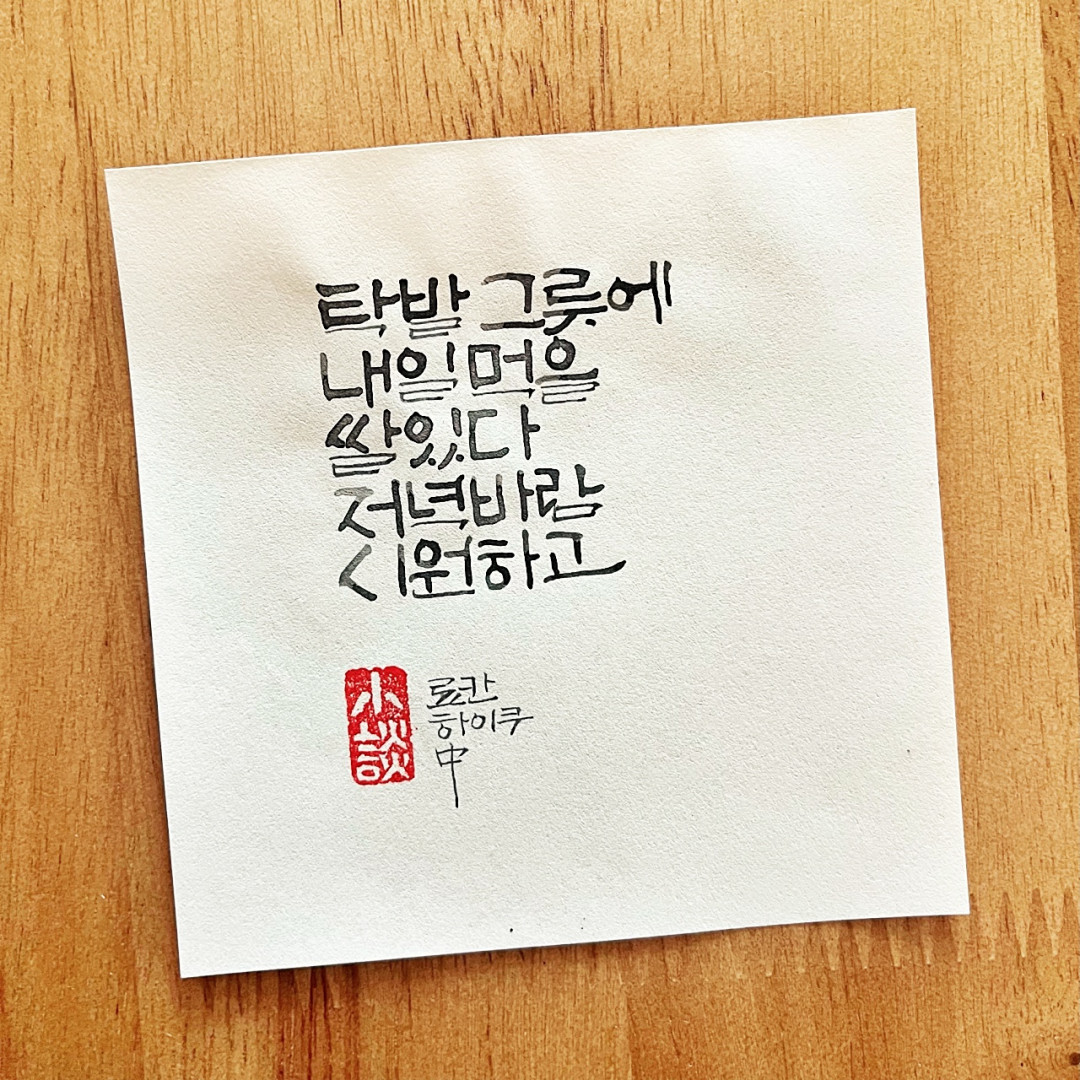 탁발 그릇에
내일 먹을
쌀있다
저녁바람
시원하고
小談
료칸
하이쿠
中